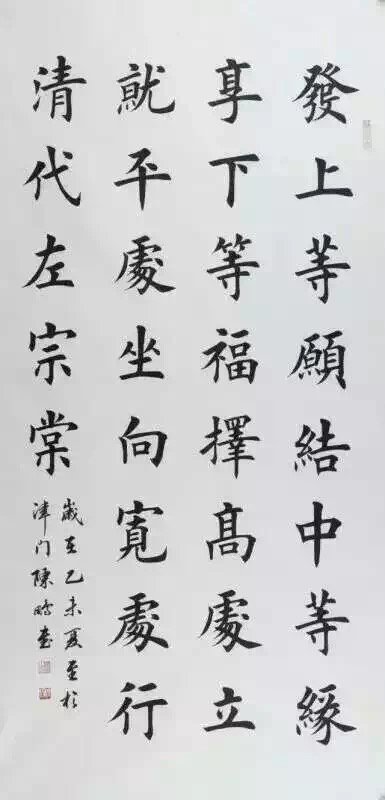 發上等願結中等緣
享下等福擇高處立
就平處坐向寬處行
清代左宗棠
歲在乙未夏至於
津門陳鵬書